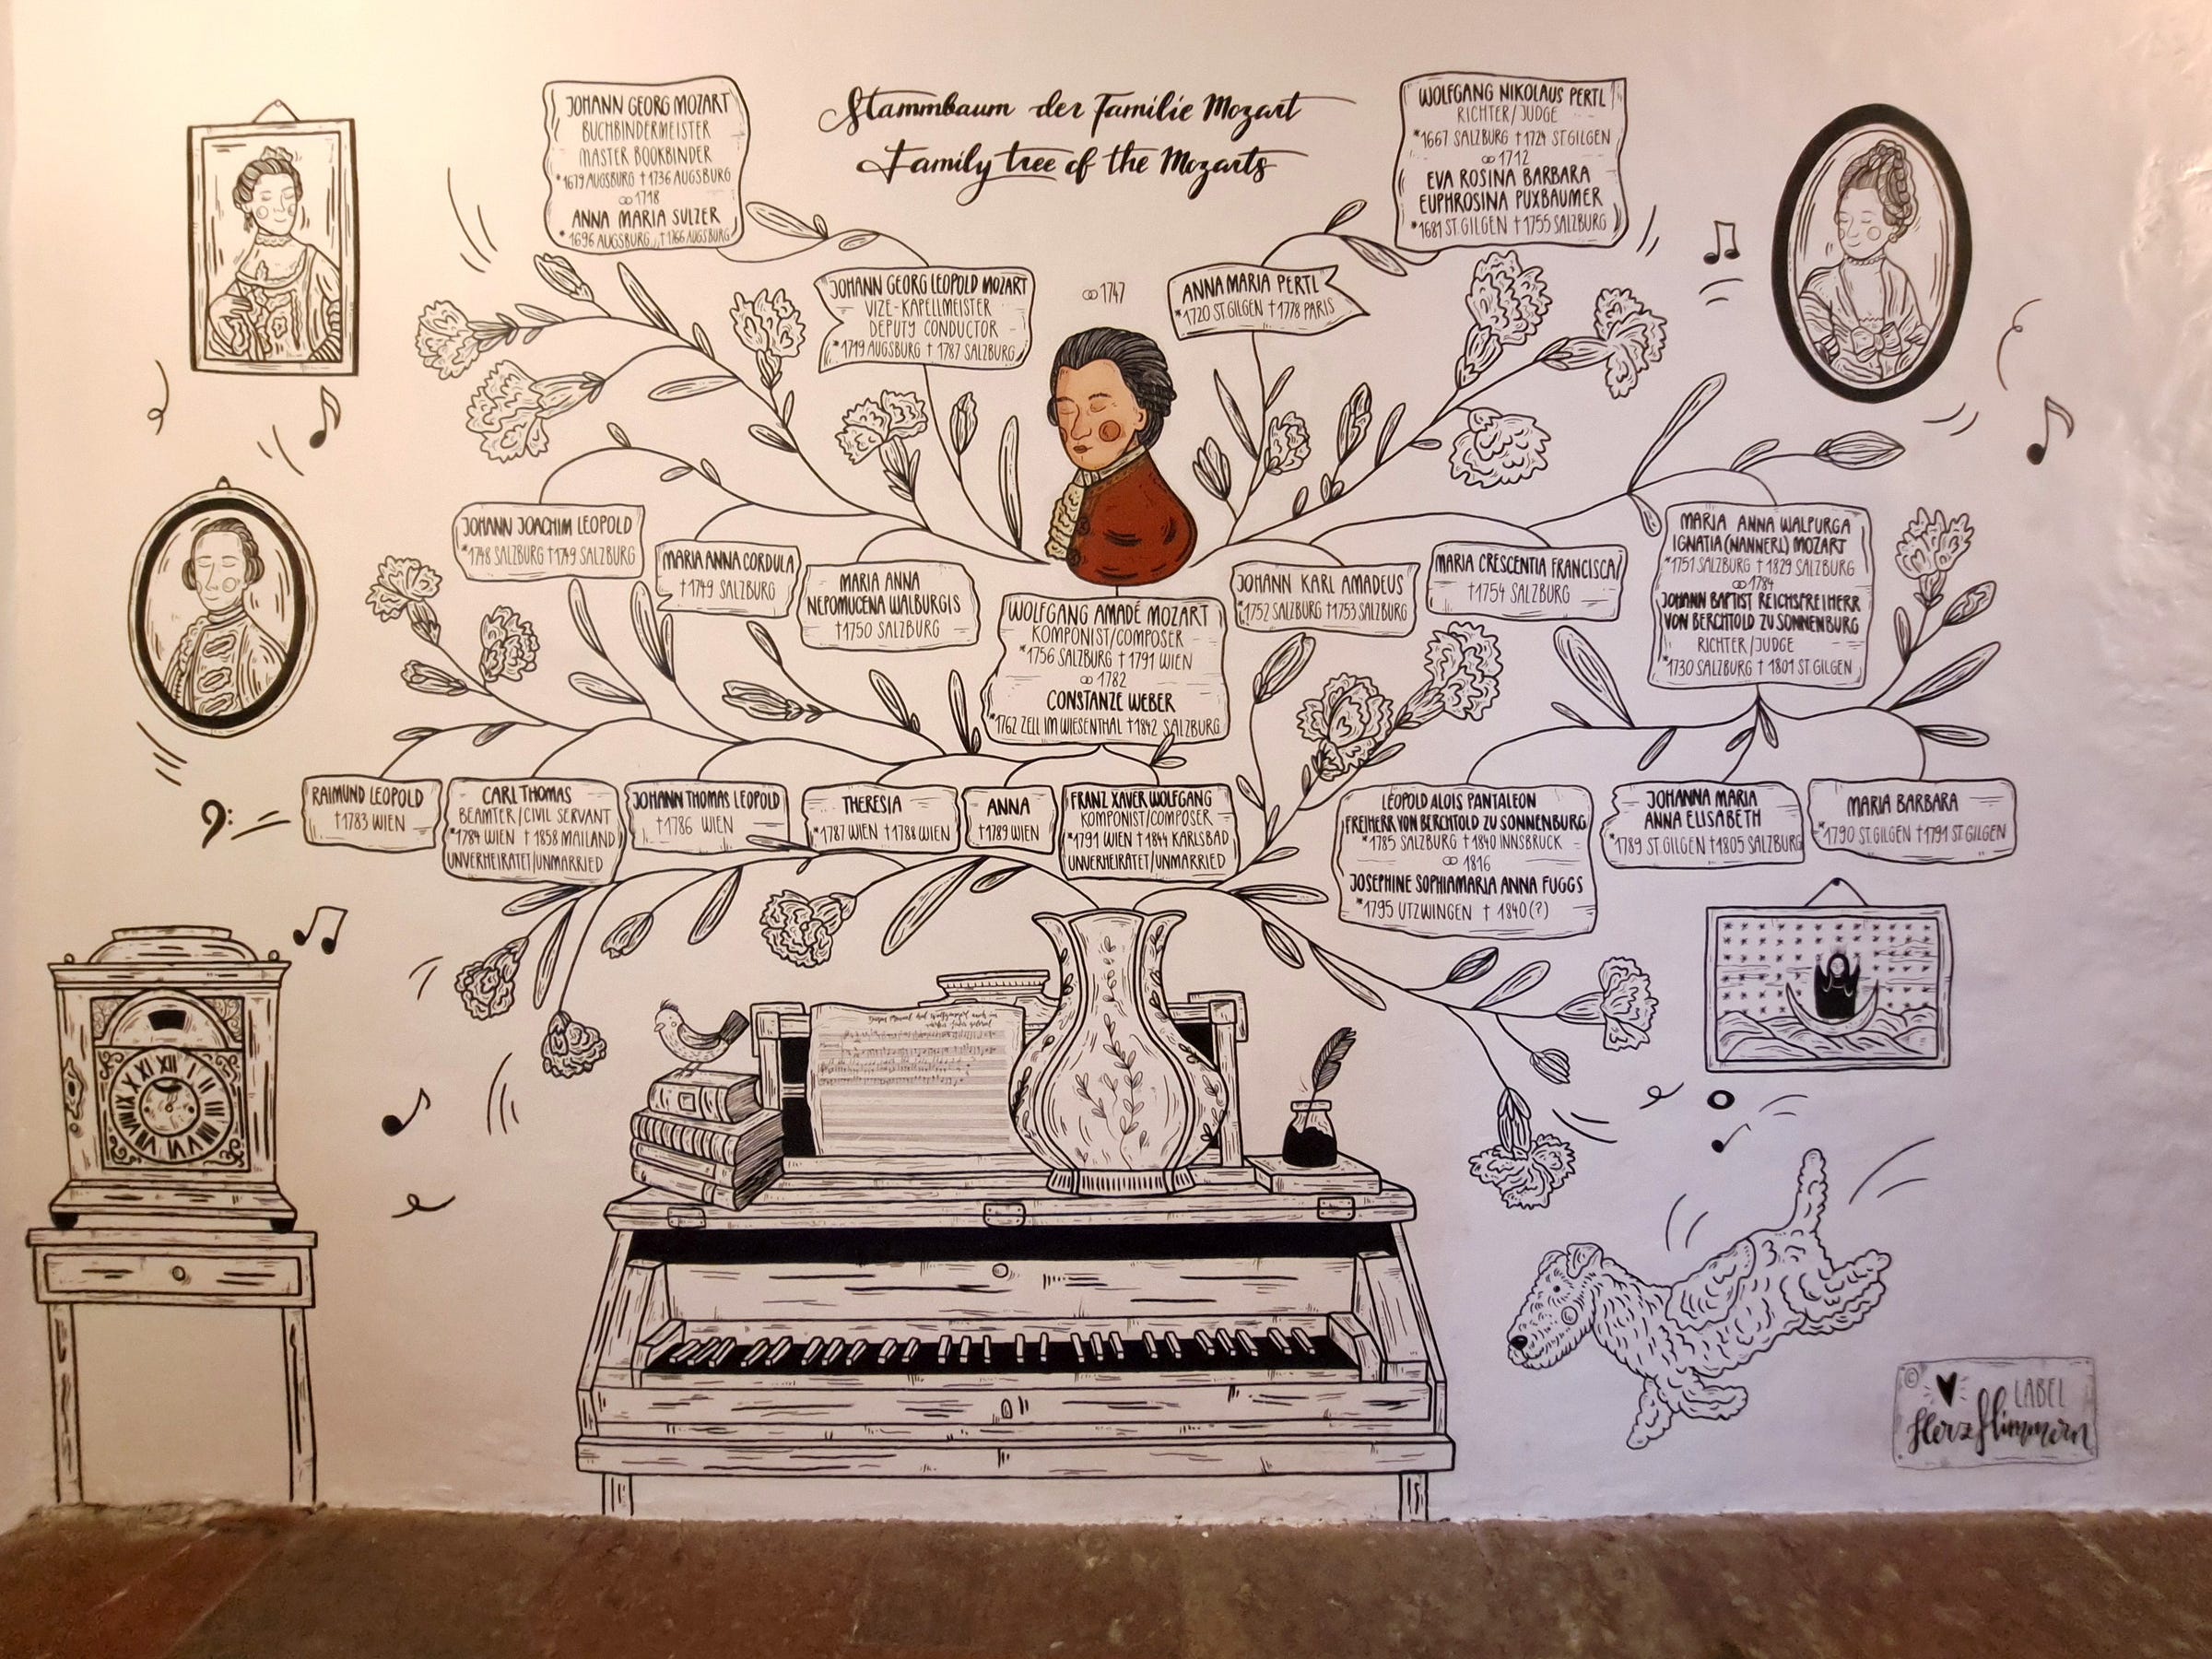 Stammbaum der Familie Mozart
Family tree of the Mozarts
JOHANN GEORG MOZART
BUCHBINDERMEISTER
MASTER BOOKBINDER
*1679 AUGSBURG †1736 AUGSBURG
⚭ 1718
ANNA MARIA SULZER
*1696 AUGSBURG †1766 AUGSBURG
WOLFGANG NIKOLAUS PERTL
RICHTER/JUDGE
*1667 SALZBURG †1724 ST.GILGEN
⚭ 1712
EVA ROSINA BARBARA
EUPHROSINA PUXBAUMER
*1681 ST.GILGEN †1755 SALZBURG
JOHANN GEORG LEOPOLD MOZART
VIZE-KAPELLMEISTER
DEPUTY CONDUCTOR
*1719 AUGSBURG †1787 SALZBURG
⚭ 1747
ANNA MARIA PERTL
*1720 ST.GILGEN †1778 PARIS
JOHANN JOACHIM LEOPOLD
*1748 SALZBURG †1749 SALZBURG
MARIA ANNA CORDULA
†1749 SALZBURG
MARIA ANNA
NEPOMUCENA WALBURGIS
†1750 SALZBURG
WOLFGANG AMADÉ MOZART
KOMPONIST/COMPOSER
*1756 SALZBURG †1791 WIEN
⚭ 1782
CONSTANZE WEBER
*1762 ZELL IM WIESENTHAL †1842 SALZBURG
JOHANN KARL AMADEUS
*1752 SALZBURG †1753 SALZBURG
MARIA CRESCENTIA FRANCISCA
†1754 SALZBURG
MARIA ANNA WALPURGA
IGNATIA (NANNERL) MOZART
*1751 SALZBURG †1829 SALZBURG
⚭ 1784
JOHANN BAPTIST REICHSFREIHERR
VON BERCHTOLD ZU SONNENBURG
RICHTER/JUDGE
*1730 SALZBURG †1801 ST.GILGEN
RAIMUND LEOPOLD
†1783 WIEN
CARL THOMAS
BEAMTER/CIVIL SERVANT
*1784 WIEN †1858 MAILAND
UNVERHEIRATET/UNMARRIED
JOHANN THOMAS LEOPOLD
†1786 WIEN
THERESIA
*1787 WIEN †1788 WIEN
ANNA
†1789 WIEN
FRANZ XAVER WOLFGANG
KOMPONIST/COMPOSER
*1791 WIEN †1844 KARLSBAD
UNVERHEIRATET/UNMARRIED
LEOPOLD ALOIS PANTALEON
FREIHERR VON BERCHTOLD ZU SONNENBURG
*1785 SALZBURG †1840 INNSBRUCK
⚭ 1816
JOSEPHINE SOPHIAMARIA ANNA FUGGS
*1795 UTZWINGEN †1840(?)
JOHANNA MARIA
ANNA ELISABETH
*1789 ST.GILGEN †1805 SALZBURG
MARIA BARBARA
*1790 ST.GILGEN †1791 ST.GILGEN
XII I II III IIII V VI VII VIII IX X XI
© LABEL
Herzflimmern